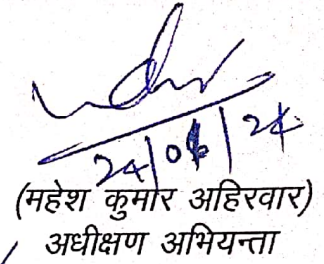 24/06/24
(महेश कुमार अहिरवार)
अधीक्षण अभियन्ता